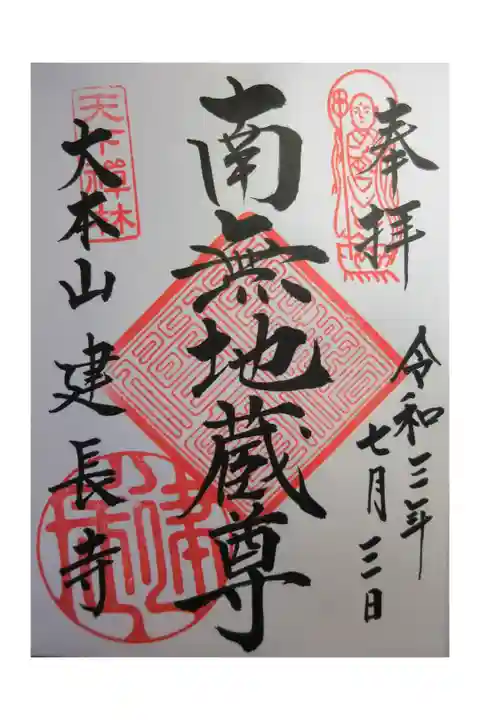 奉拝
令和三年
七月三日
南無地蔵尊
天下禅林
大本山建長寺